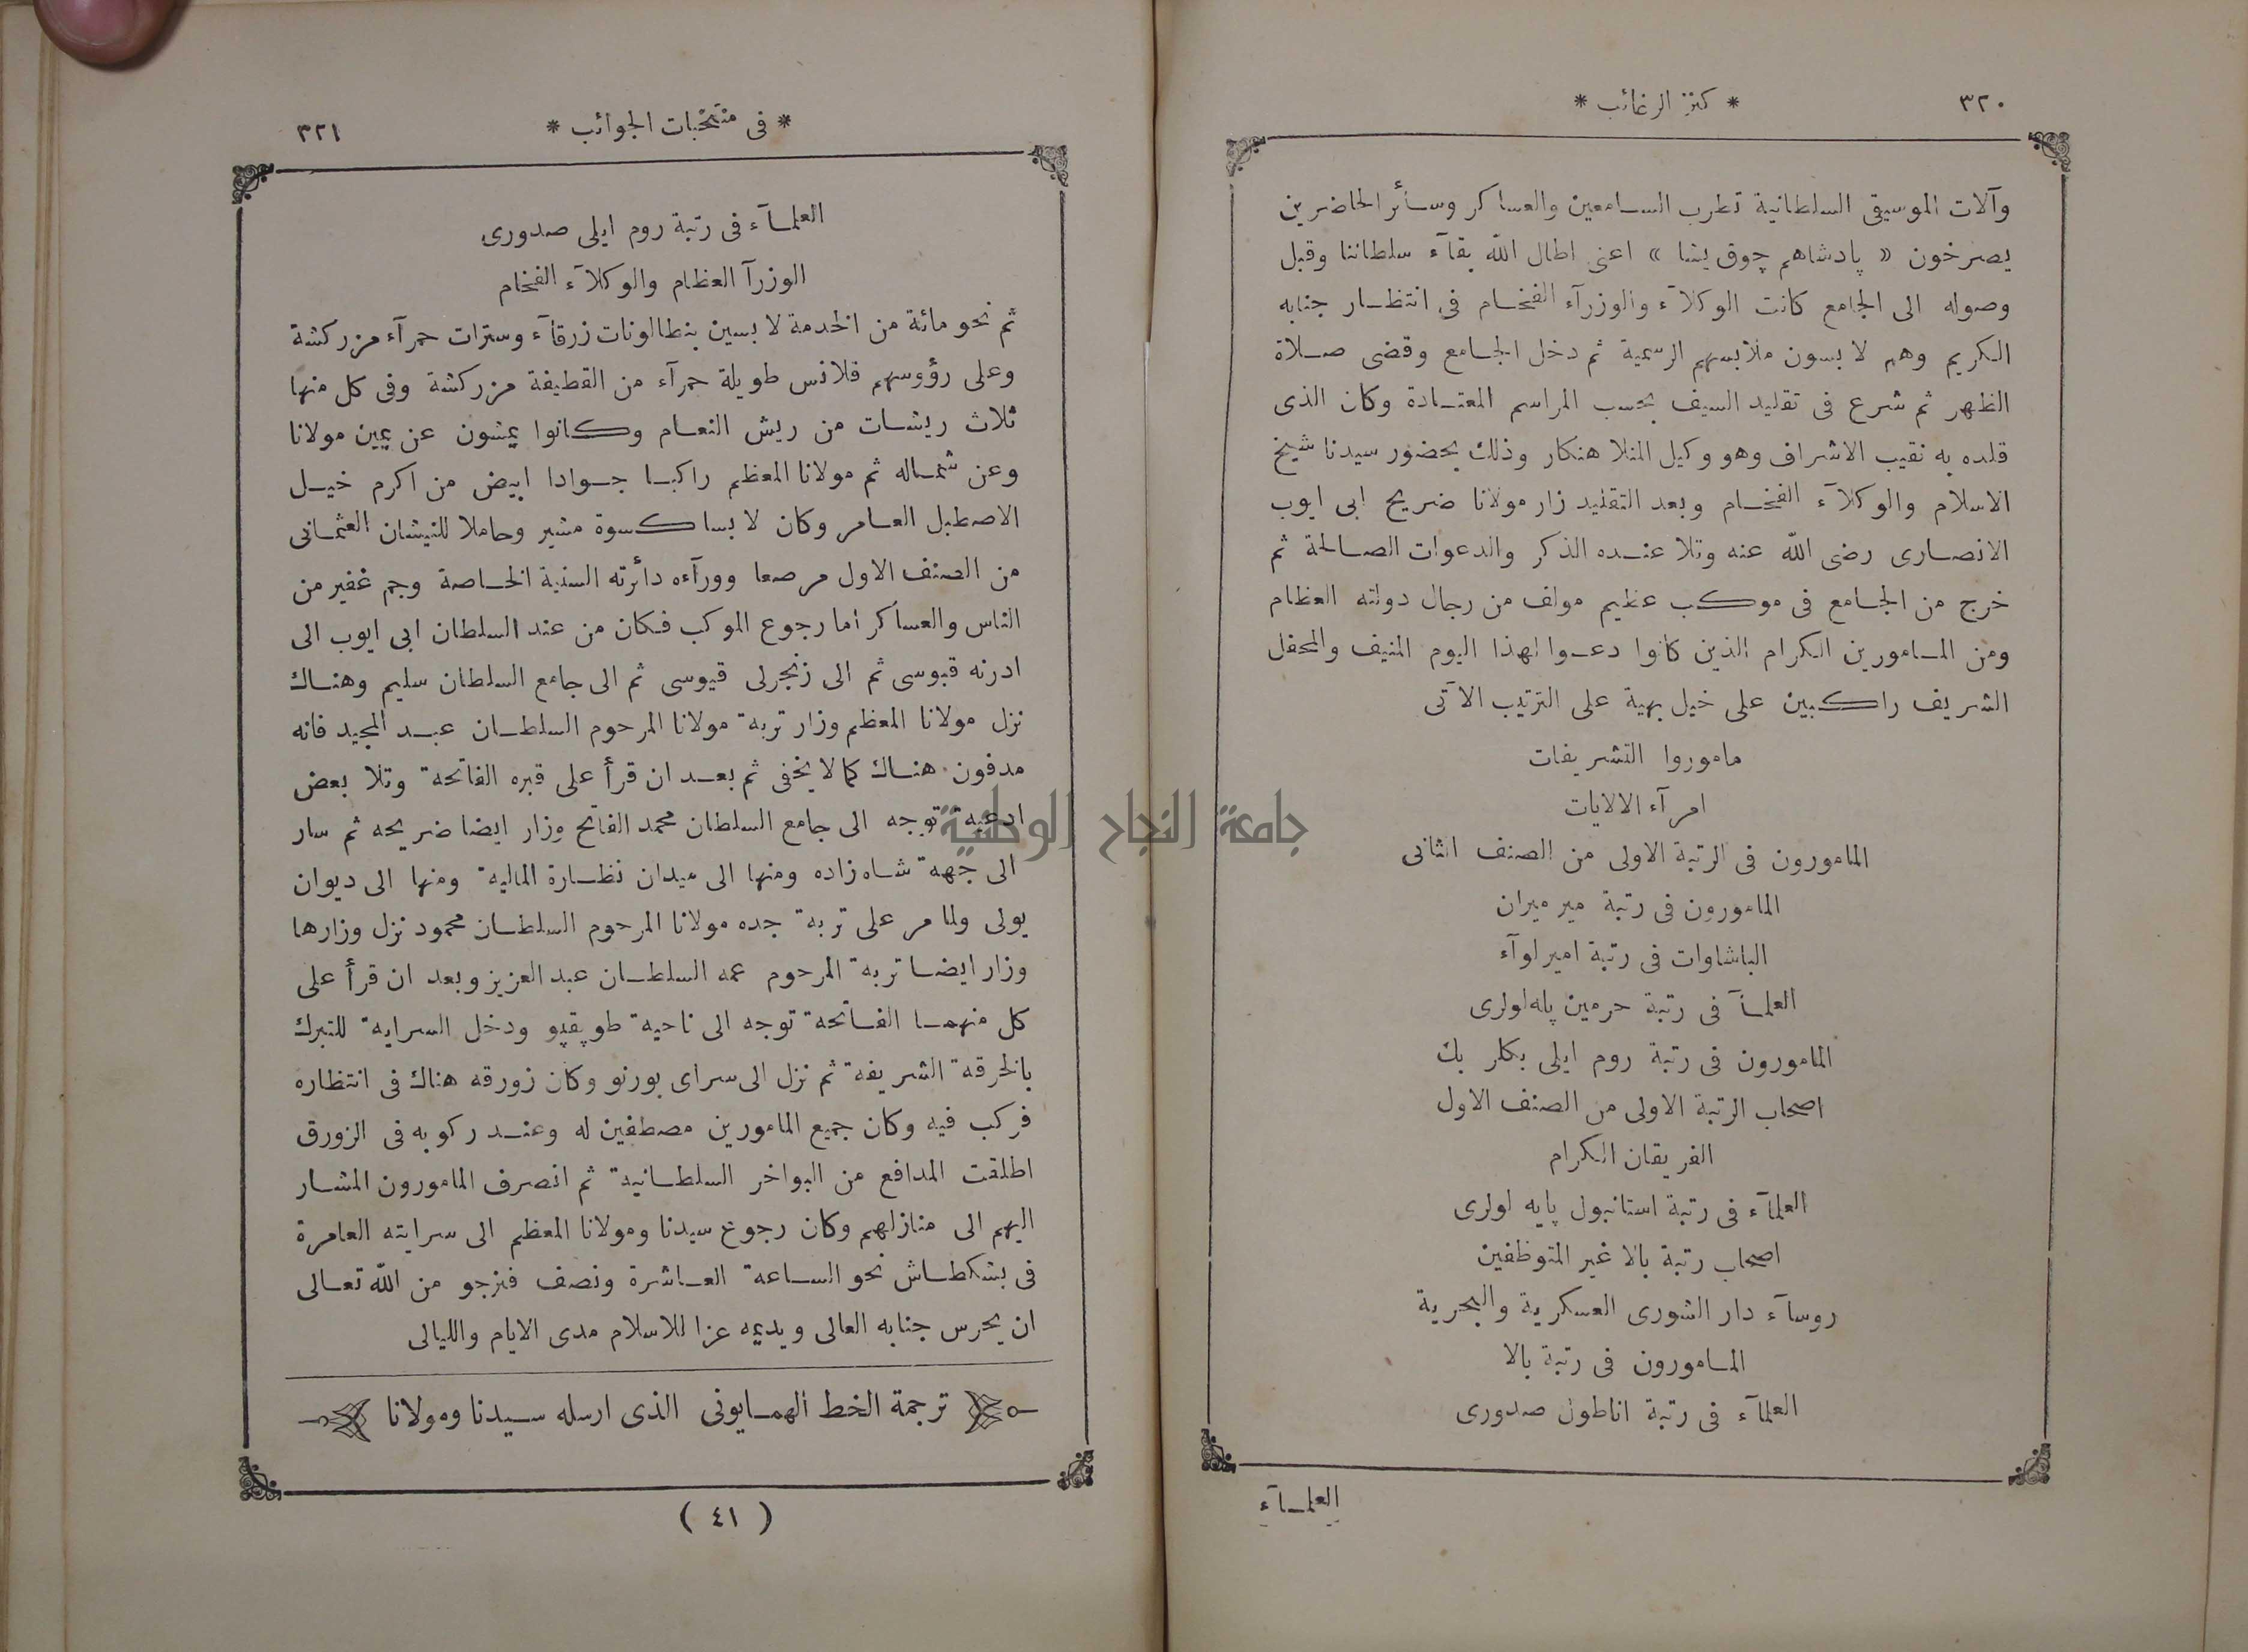 ٣٢٠
* كنز الرغائب *
وآلات الموسيقى السلطانية تطرب السامعين والعساكر وسائر الحاضرين
يصرخون « پادشاهم چوق يشا » اعنى اطال الله بقآء سلطاننا وقبل
وصوله الى الجامع كانت الوكلآء والوزرآء الفخام فى انتظار جنابه
الكريم وهم لابسون ملابسهم الرسمية ثم دخل الجامع وقضى صلاة
الظهر ثم شرع فى تقليد السيف بحسب المراسم المعتادة وكان الذى
قلده به نقيب الاشراف وهو وكيل المنلا هنكار وذلك بحضور سيدنا شيخ
الاسلام والوكلآء الفخام وبعد التقليد زار مولانا ضريح ابى ايوب
الانصارى رضى الله عنه وتلا عنده الذكر والدعوات الصالحة ثم
خرج من الجامع فى موكب عظيم مولف من رجال دولته العظام
ومن المامورين الكرام الذين كانوا دعوا لهذا اليوم المنيف والمحفل
الشريف راكبين على خيل بهية على الترتيب الآتى
ماموروا التشريفات
امرآء الالايات
المامورون فى الرتبة الاولى من الصنف الثانى
المامورون فى رتبة مير ميران
الباشاوات فى رتبة اميرلوآء
العلمآ فى رتبة حرمين پايه‌لولرى
المامورون فى رتبة روم ايلى بكلر بك
اصحاب الرتبة الاولى من الصنف الاول
الفريقان الكرام
العلمآء فى رتبة استانبول پايه لولرى
اصحاب رتبة بالا غير المتوظفين
روسآء دار الشورى العسكرية والبحرية
المامورون فى رتبة بالا
العلمآء فى رتبة اناطول صدورى
العلمآء
* فى منتخبات الجوائب *
٣٢١
العلمآء فى رتبة روم ايلى صدورى
الوزرآ العظام والوكلآء الفخام
ثم نحو مائة من الخدمة لابسين بنطالونات زرقآء وسترات حمرآء مزركشة
وعلى رؤوسهم قلانس طويلة حمرآء من القطيفة مزركشة وفى كل منها
ثلاث ريشات من ريش النعام وكانوا يمشون عن يمين مولانا
وعن شماله ثم مولانا المعظم راكبا جوادا ابيض من اكرم خيل
الاصطبل العامر وكان لابسا كسوة مشير وحاملا للنيشان العثمانى
من الصنف الاول مرصعا وورآءه دائرته السنية الخاصة وجم غفير من
الناس والعساكر اما رجوع الموكب فكان من عند السلطان ابى ايوب الى
ادرنه قبوسى ثم الى زنجرلى قيوسى ثم الى جامع السلطان سليم وهناك
نزل مولانا المعظم وزار تربة مولانا المرحوم السلطان عبد المجيد فانه
مدفون هناك كما لا يخفى ثم بعد ان قرأ على قبره الفاتحة وتلا بعض
ادعية توجه الى جامع السلطان محمد الفاتح وزار ايضا ضريحه ثم سار
الى جهة شاه زاده ومنها الى ميدان نظارة المالية ومنها الى ديوان
يولى ولما مر على تربة جده مولانا المرحوم السلطان محمود نزل وزارها
وزار ايضا تربة المرحوم عمه السلطان عبد العزيز وبعد ان قرأ على
كل منهما الفاتحة توجه الى ناحية طوپقپو ودخل السراية للتبرك
بالخرقة الشريفة ثم نزل الى سراى بورنو وكان زورقه هناك فى انتظاره
فركب فيه وكان جميع المامورين مصطفين له وعند ركوبه فى الزورق
اطلقت المدافع من البواخر السلطانية ثم انصرف المامورون المشار
اليهم الى منازلهم وكان رجوع سيدنا ومولانا المعظم الى سرايته العامرة
فى بشكطاش نحو الساعة العاشرة ونصف فنرجو من الله تعالى
ان يحرس جنابه العالى ويديمه عزا للاسلام مدى الايام والليالى
ترجمة الخط الهمايونى الذى ارسله سيدنا ومولانا
( ٤١ )
جامعة النجاح الوطنية